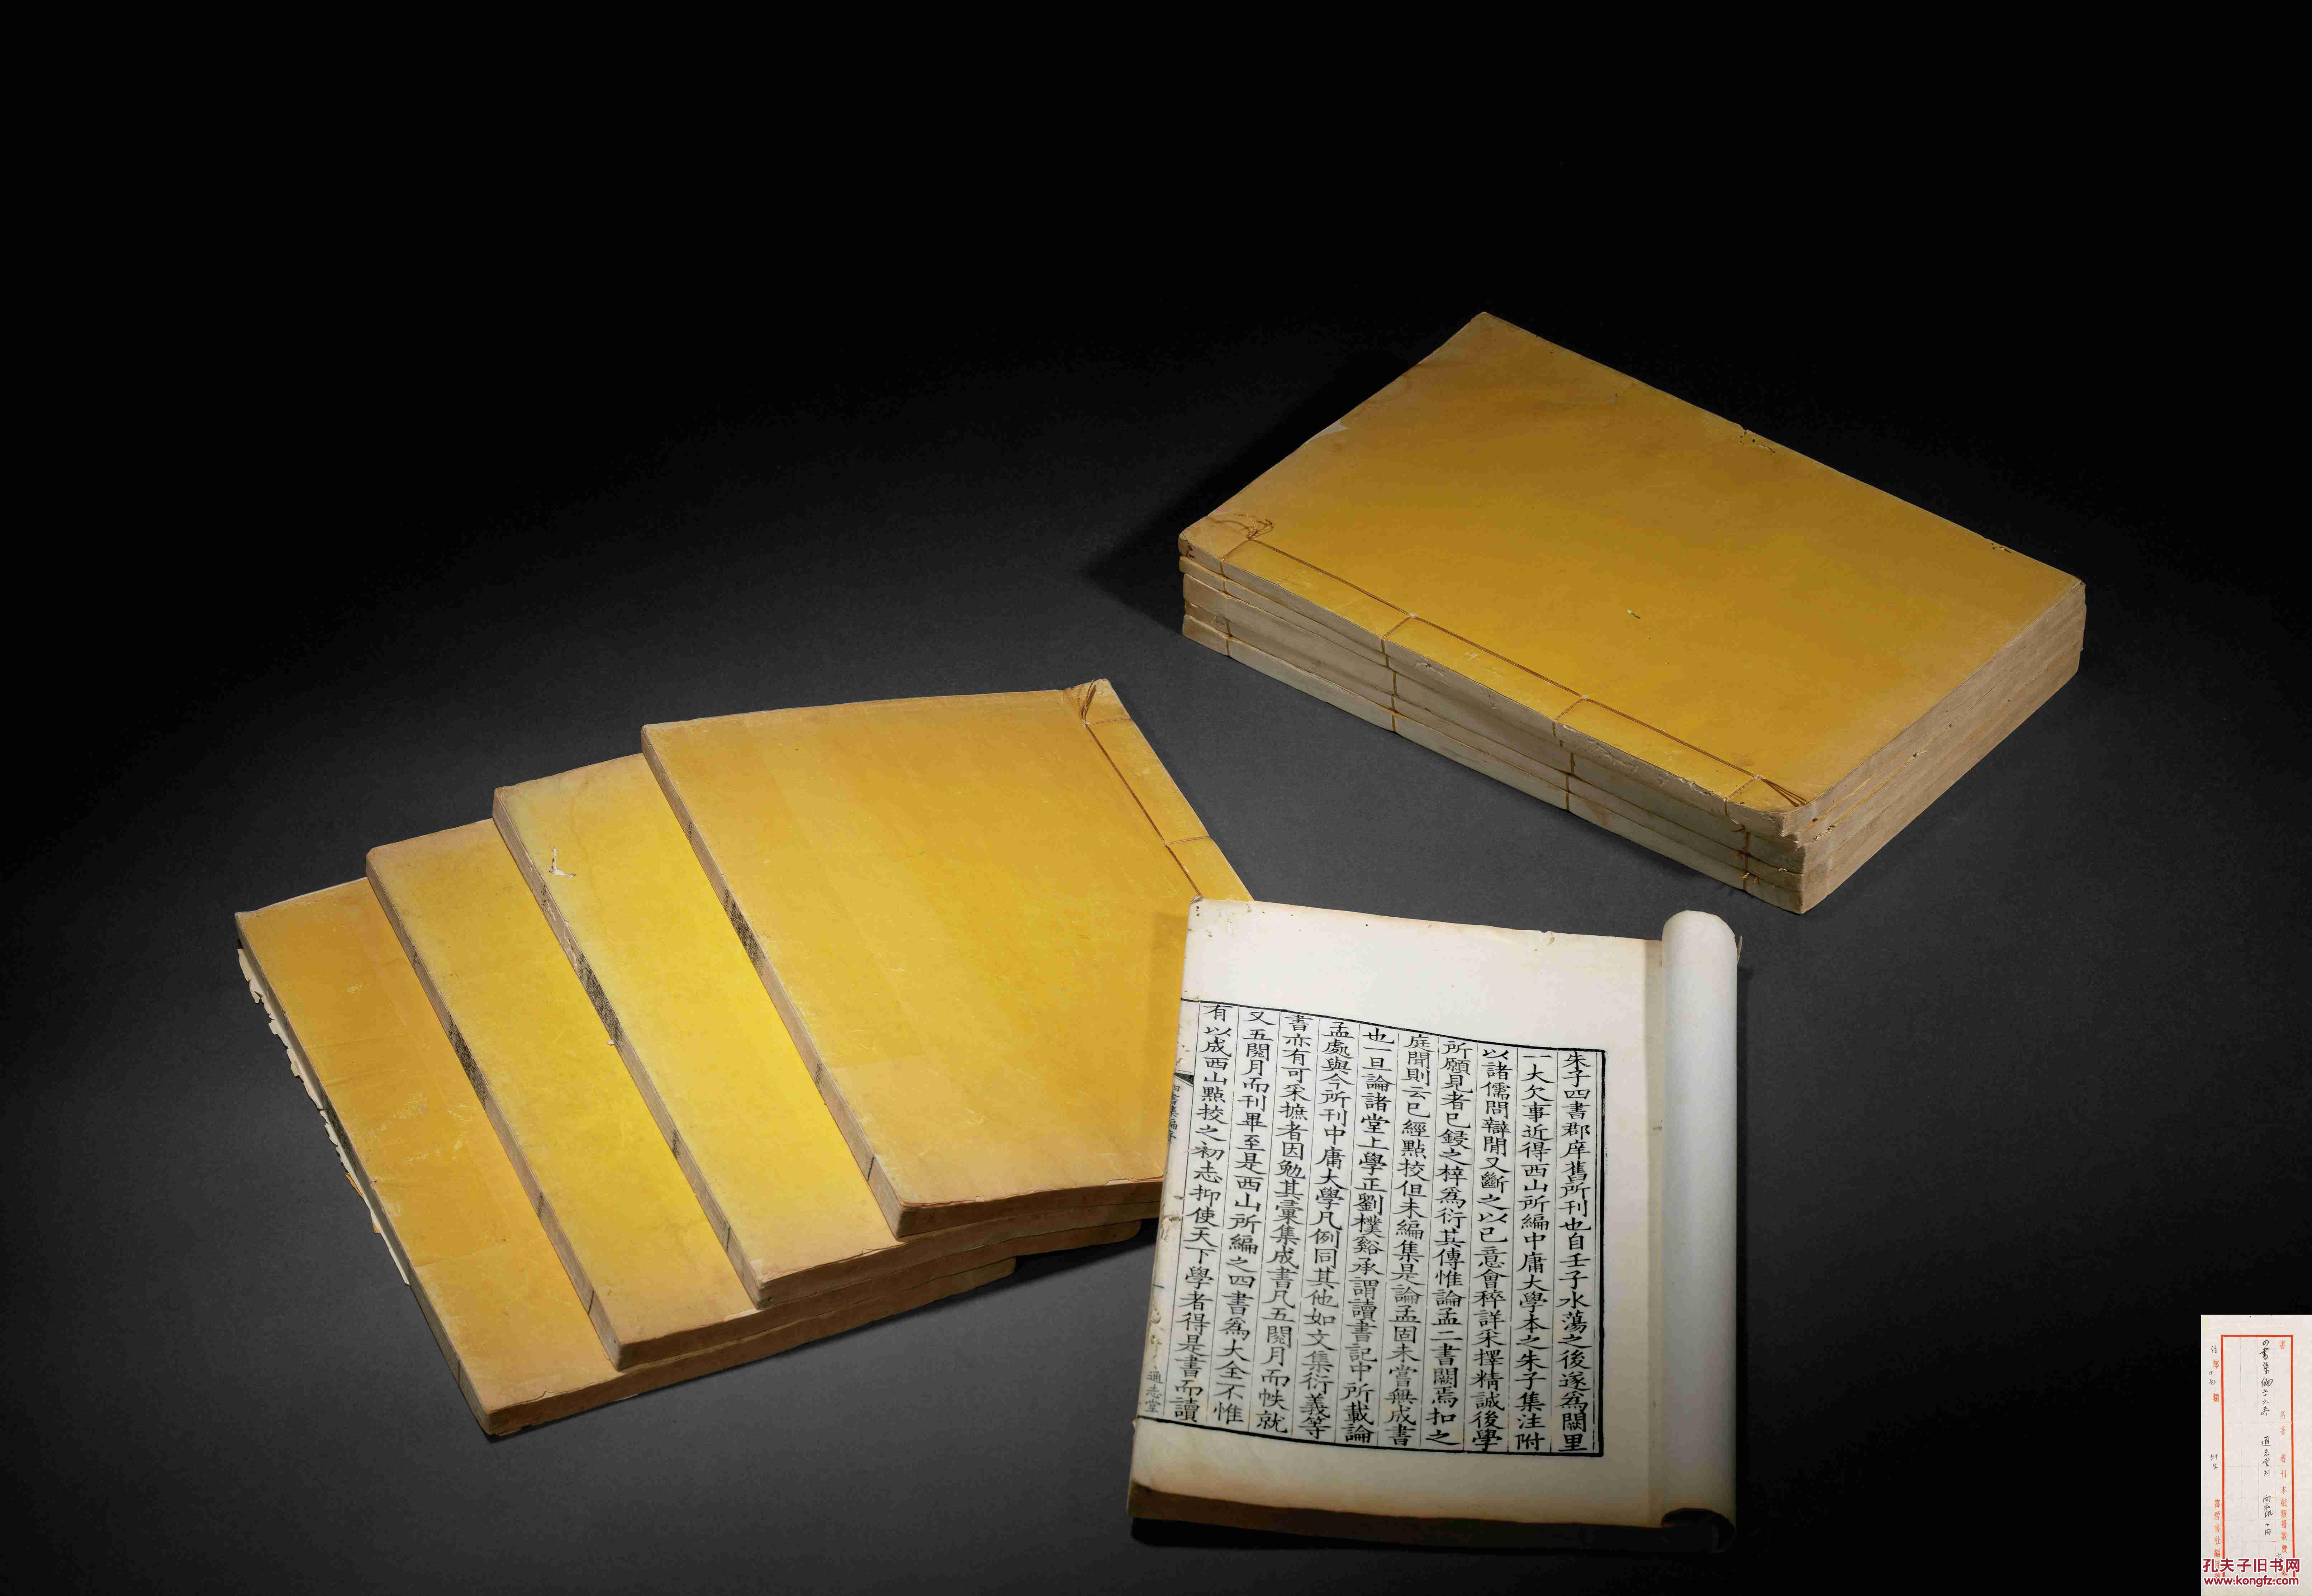 朱子四書郡庠舊所刊也自壬子水蕩之後遂爲闕里
一大欠事近得西山所編中庸大學本之朱子集注附
以諸儒問辯閒又斷之以已意會稡詳采擇精誠後學
所願見者已鋟之梓爲衍其傳惟論孟二書闕焉扣之
庭聞則云已經點挍但未編集是論孟固未嘗無成書
也一旦論諸堂上學正劉樸谿承謂讀書記中所載論
孟處與今所刊中庸大學凡例同其他如文集衍義等
書亦有可采摭者因勉其彙集成書凡五閱月而帙就
又五閱月而刊畢至是西山所編之四書爲大全不惟
有以成西山點挍之初志抑使天下學者得是書而讀
四書集編序
通志堂
四書集編
通志堂刊
十冊
孔夫子旧书网
www.kongfz.com